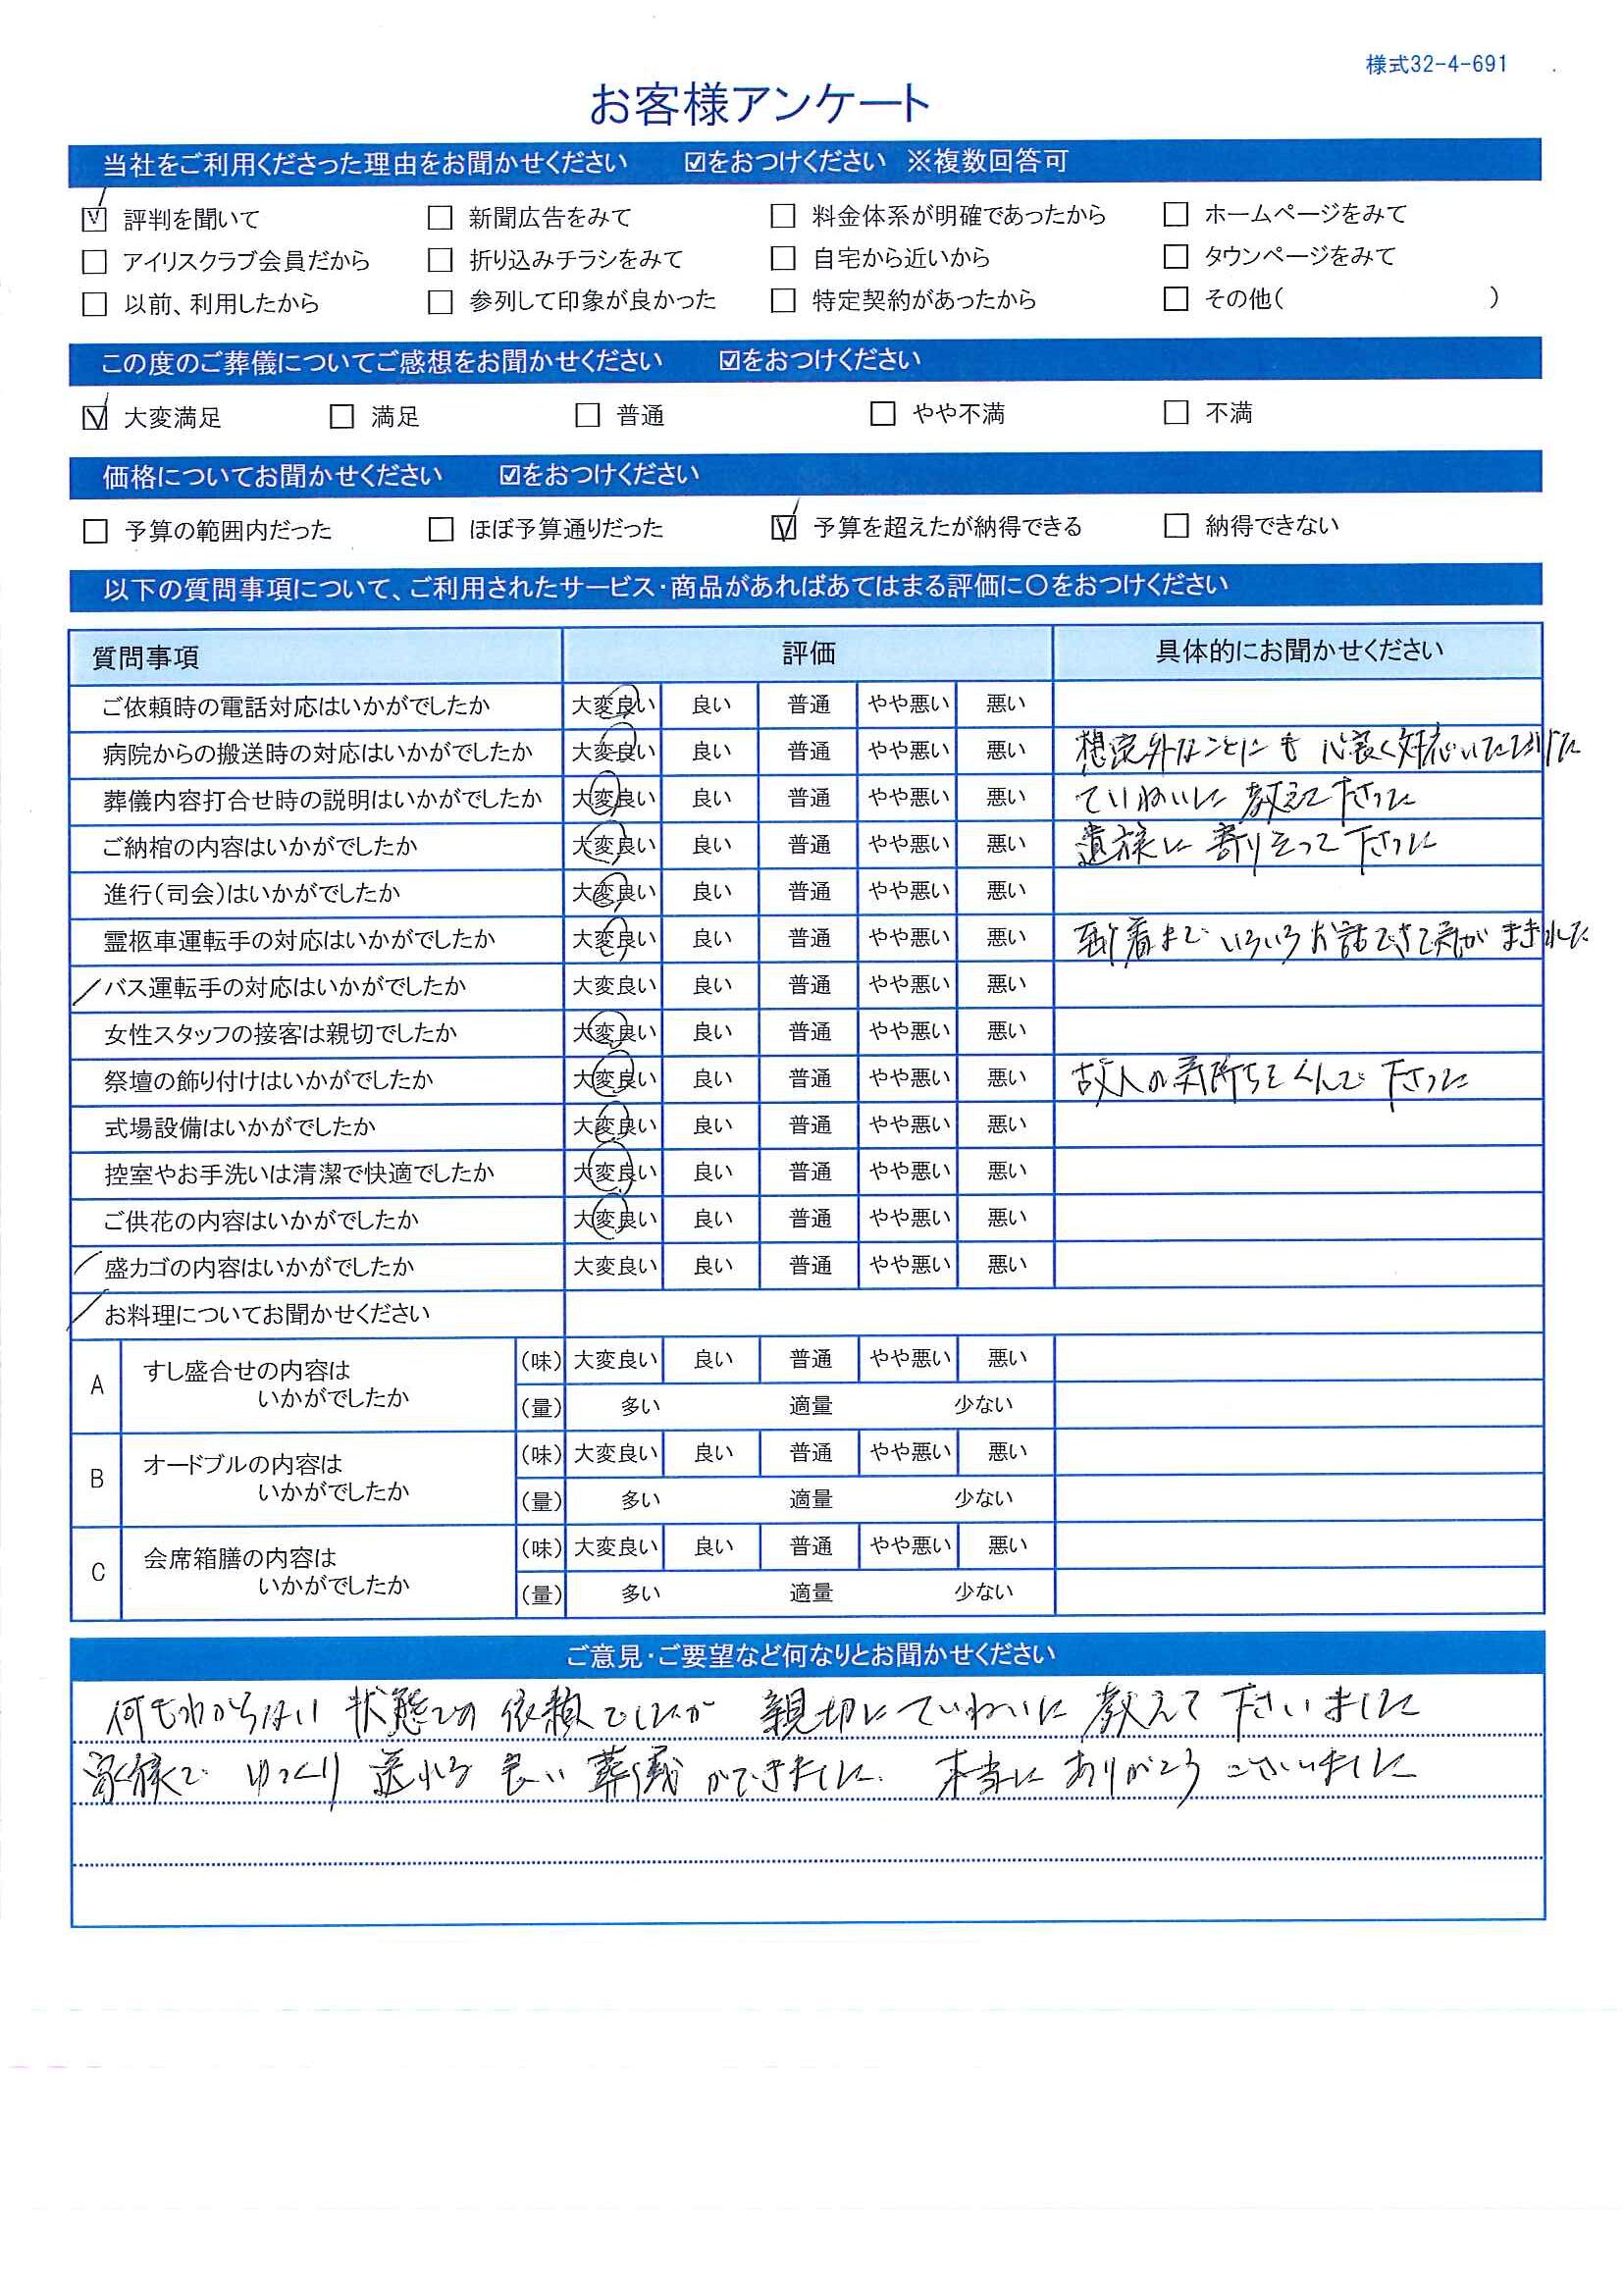 様式32-4-691
お客様アンケート
当社をご利用くださった理由をお聞かせください ☑をおつけください ※複数回答可
☑ 評判を聞いて □ 新聞広告をみて □ 料金体系が明確であったから □ ホームページをみて
□ アイリスクラブ会員だから □ 折り込みチラシをみて □ 自宅から近いから □ タウンページをみて
□ 以前、利用したから □ 参列して印象が良かった □ 特定契約があったから □ その他( )
この度のご葬儀についてご感想をお聞かせください ☑をおつけください
☑ 大変満足 □ 満足 □ 普通 □ やや不満 □ 不満
価格についてお聞かせください ☑をおつけください
□ 予算の範囲内だった □ ほぼ予算通りだった ☑ 予算を超えたが納得できる □ 納得できない
以下の質問事項について、ご利用されたサービス・商品があればあてはまる評価に〇をおつけください
質問事項 評価 具体的にお聞かせください
ご依頼時の電話対応はいかがでしたか 大変良い 良い 普通 やや悪い 悪い
病院からの搬送時の対応はいかがでしたか 大変良い 良い 普通 やや悪い 悪い 想定外なことにも 心良く対応いただけた
葬儀内容打合せ時の説明はいかがでしたか 大変良い 良い 普通 やや悪い 悪い ていねいに 教えて下さった
ご納棺の内容はいかがでしたか 大変良い 良い 普通 やや悪い 悪い 遺族に 寄りそって 下さった
進行(司会)はいかがでしたか 大変良い 良い 普通 やや悪い 悪い
霊柩車運転手の対応はいかがでしたか 大変良い 良い 普通 やや悪い 悪い 到着まで いろいろお話できて気がまぎれた
バス運転手の対応はいかがでしたか 大変良い 良い 普通 やや悪い 悪い
女性スタッフの接客は親切でしたか 大変良い 良い 普通 やや悪い 悪い
祭壇の飾り付けはいかがでしたか 大変良い 良い 普通 やや悪い 悪い 故人の気持ちをくんで 下さった
式場設備はいかがでしたか 大変良い 良い 普通 やや悪い 悪い
控室やお手洗いは清潔で快適でしたか 大変良い 良い 普通 やや悪い 悪い
ご供花の内容はいかがでしたか 大変良い 良い 普通 やや悪い 悪い
盛カゴの内容はいかがでしたか 大変良い 良い 普通 やや悪い 悪い
お料理についてお聞かせください
A すし盛合せの内容は いかがでしたか (味) 大変良い 良い 普通 やや悪い 悪い
(量) 多い 適量 少ない
B オードブルの内容は いかがでしたか (味) 大変良い 良い 普通 やや悪い 悪い
(量) 多い 適量 少ない
C 会席箱膳の内容は いかがでしたか (味) 大変良い 良い 普通 やや悪い 悪い
(量) 多い 適量 少ない
ご意見・ご要望など何なりとお聞かせください
何もわからない 状態での 依頼でしたが 親切にていねいに 教えて 下さいました
家族で ゆっくり 送れる 良い 葬儀 ができました 本当に ありがとう ございました